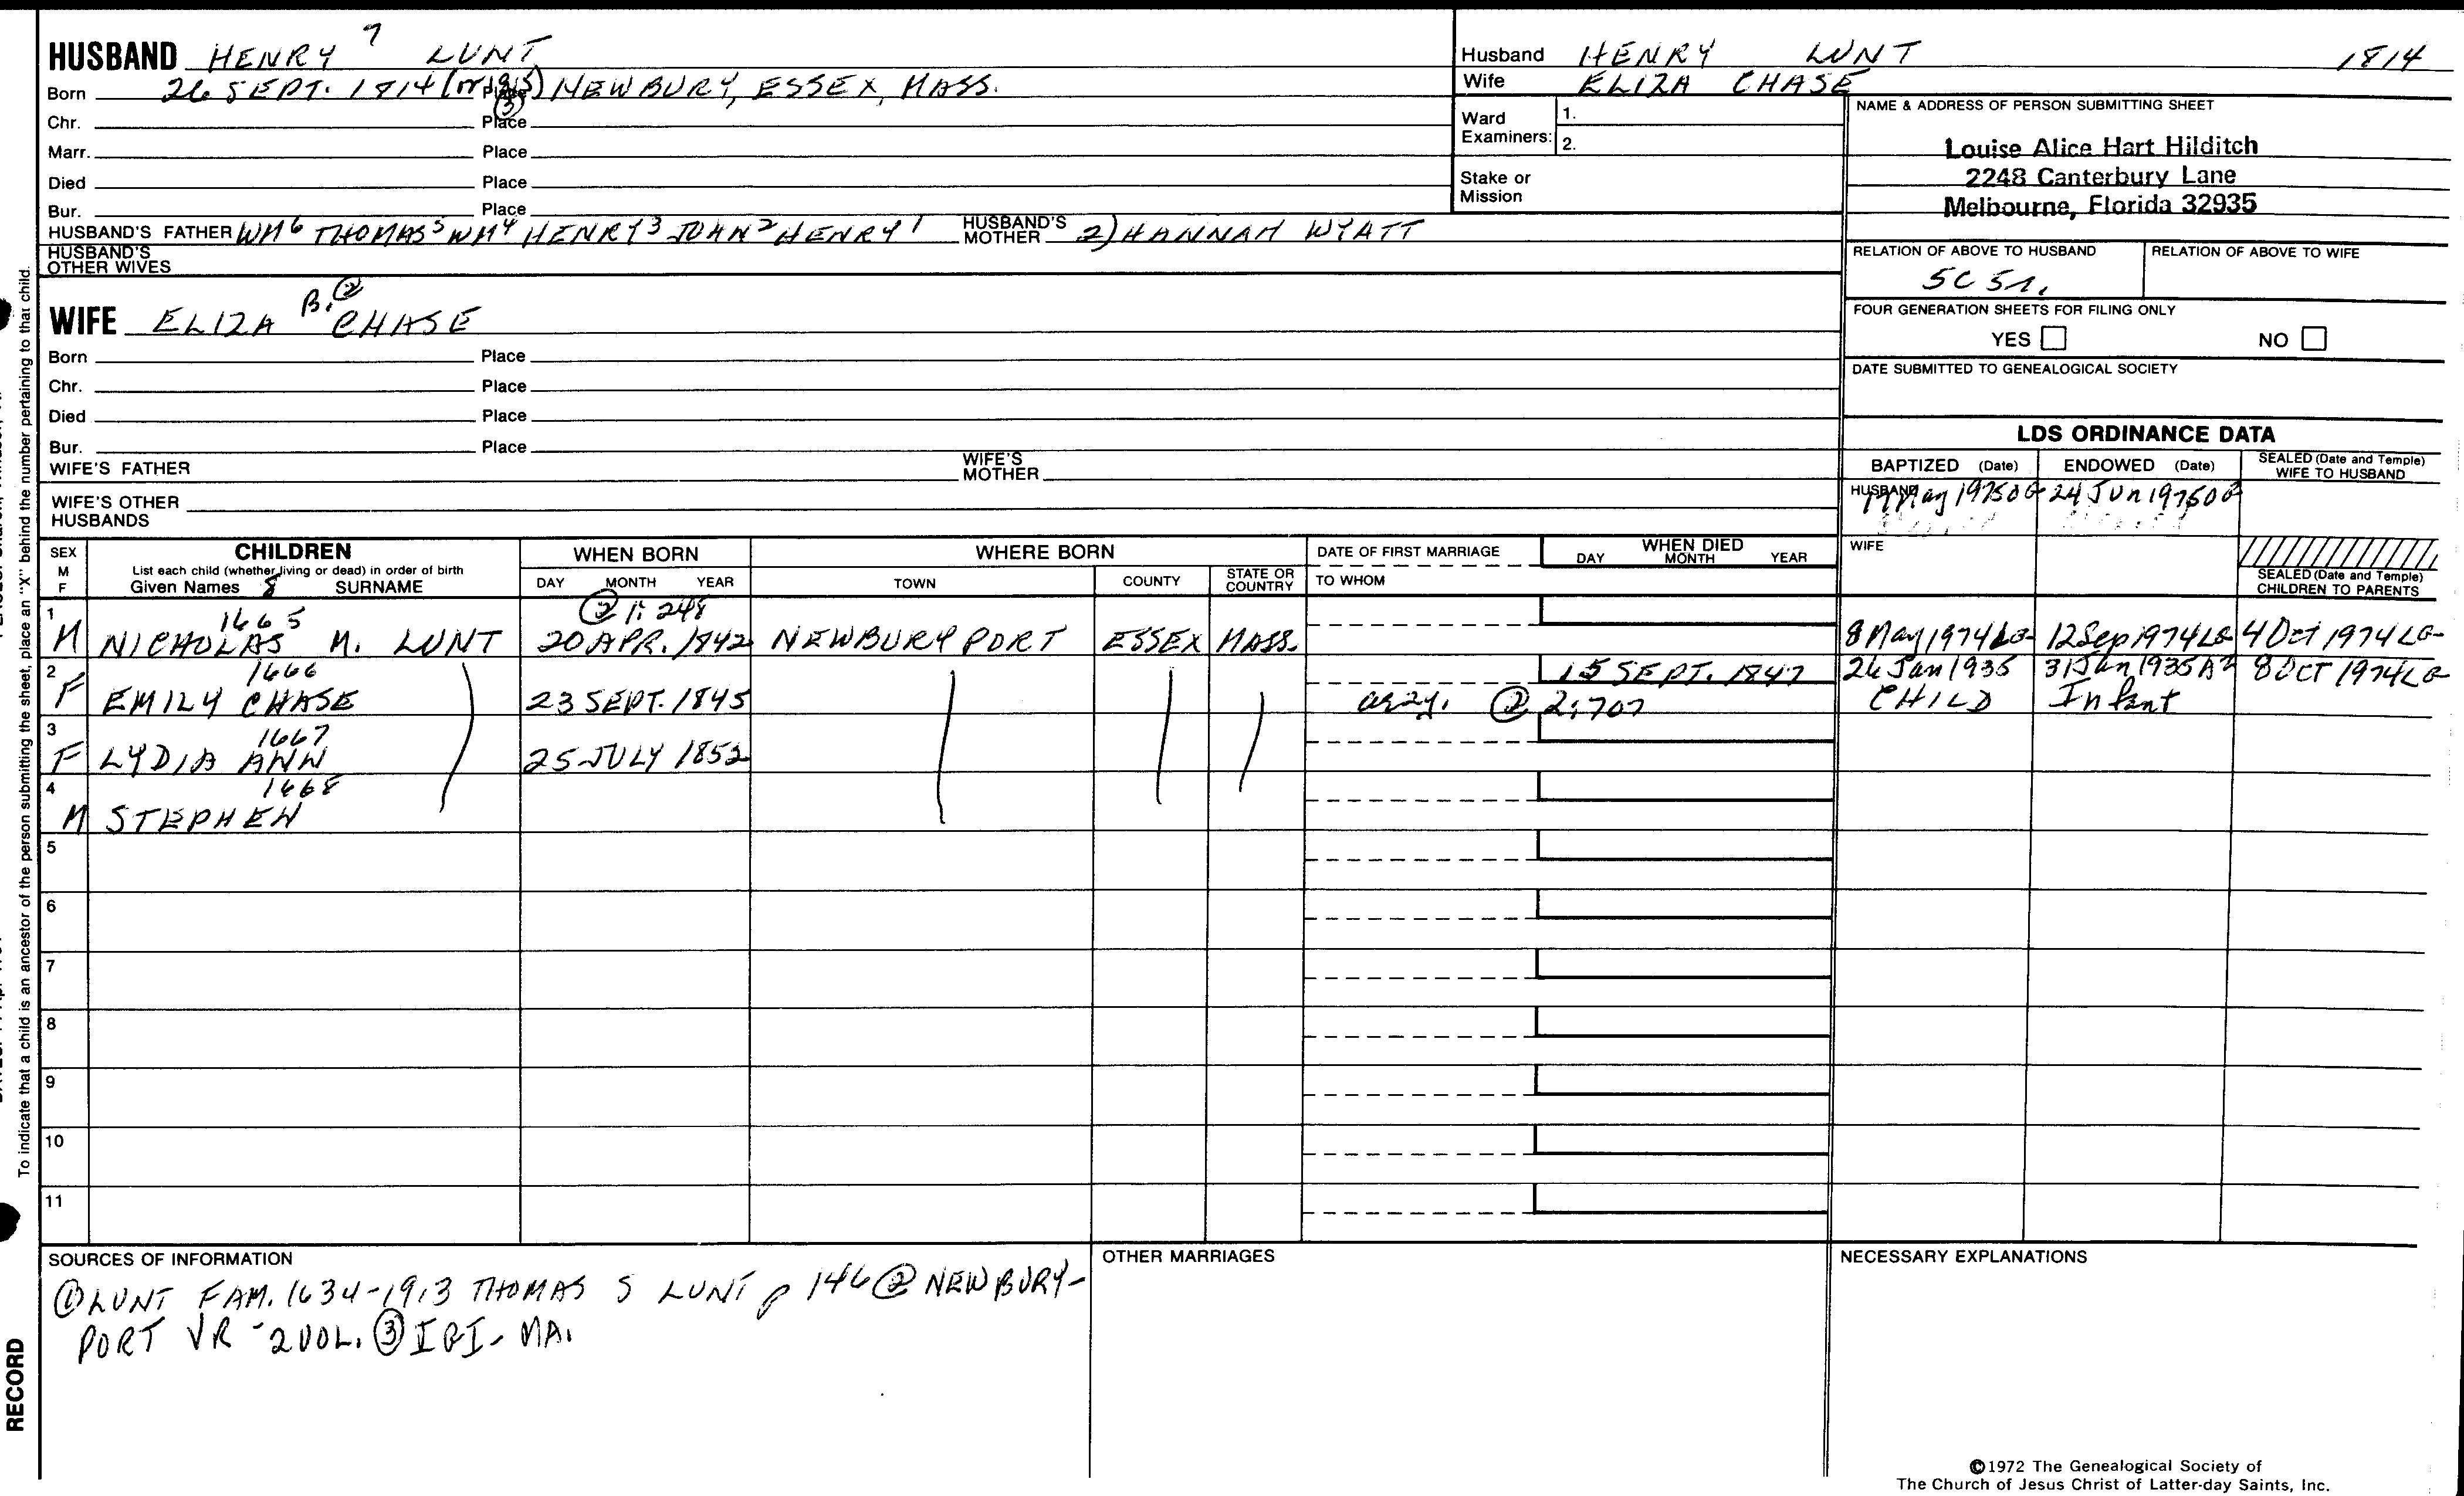 HUSBAND HENRY 7 LUNT
Born 26 SEPT. 1814 (or 1815) ③ Place NEWBURY, ESSEX, MASS.
Chr. Place
Marr. Place
Died Place
Bur. Place
HUSBAND'S FATHER WM6 THOMAS5 WM4 HENRY3 JOHN2 HENRY1 HUSBAND'S MOTHER 2) HANNAH WYATT
HUSBAND'S OTHER WIVES
WIFE ELIZA B. ② CHASE
Born Place
Chr. Place
Died Place
Bur. Place
WIFE'S FATHER WIFE'S MOTHER
WIFE'S OTHER HUSBANDS
Husband HENRY LUNT 1814
Wife ELIZA CHASE
Ward Examiners: 1.
2.
Stake or Mission
NAME & ADDRESS OF PERSON SUBMITTING SHEET
Louise Alice Hart Hilditch
2248 Canterbury Lane
Melbourne, Florida 32935
RELATION OF ABOVE TO HUSBAND RELATION OF ABOVE TO WIFE
5C 5r.
FOUR GENERATION SHEETS FOR FILING ONLY
YES NO
DATE SUBMITTED TO GENEALOGICAL SOCIETY
LDS ORDINANCE DATA
BAPTIZED (Date) ENDOWED (Date) SEALED (Date and Temple) WIFE TO HUSBAND
HUSBAND May 1975 OG 24 Jun 1975 OG
WIFE
SEALED (Date and Temple) CHILDREN TO PARENTS
SEX M F
CHILDREN
List each child (whether living or dead) in order of birth
Given Names 8 SURNAME
WHEN BORN
DAY MONTH YEAR
WHERE BORN
TOWN COUNTY STATE OR COUNTRY
DATE OF FIRST MARRIAGE
TO WHOM
WHEN DIED
DAY MONTH YEAR
1 1665 ② 1: 248
M NICHOLAS M. LUNT 20 APR. 1842 NEWBURYPORT ESSEX MASS. 8 May 1974 LG 12 Sep 1974 LG 4 Oct 1974 LG
2 1666 15 SEPT. 1847 26 Jan 1935 31 Jan 1935 AZ 8 OCT 1974 LG
F EMILY CHASE 23 SEPT. 1845 ae 2y. ② 2:707 CHILD Infant
3 1667
F LYDIA ANN 25 JULY 1852
4 1668
M STEPHEN
5
6
7
8
9
10
11
SOURCES OF INFORMATION
① LUNT FAM. 1634-1913 THOMAS S LUNT p 146 ② NEWBURY-
PORT VR - 2 VOL. ③ IGI - MA.
OTHER MARRIAGES
NECESSARY EXPLANATIONS
©1972 The Genealogical Society of
The Church of Jesus Christ of Latter-day Saints, Inc.
To indicate that a child is an ancestor of the person submitting the sheet, place an "X" behind the number pertaining to that child.
RECORD